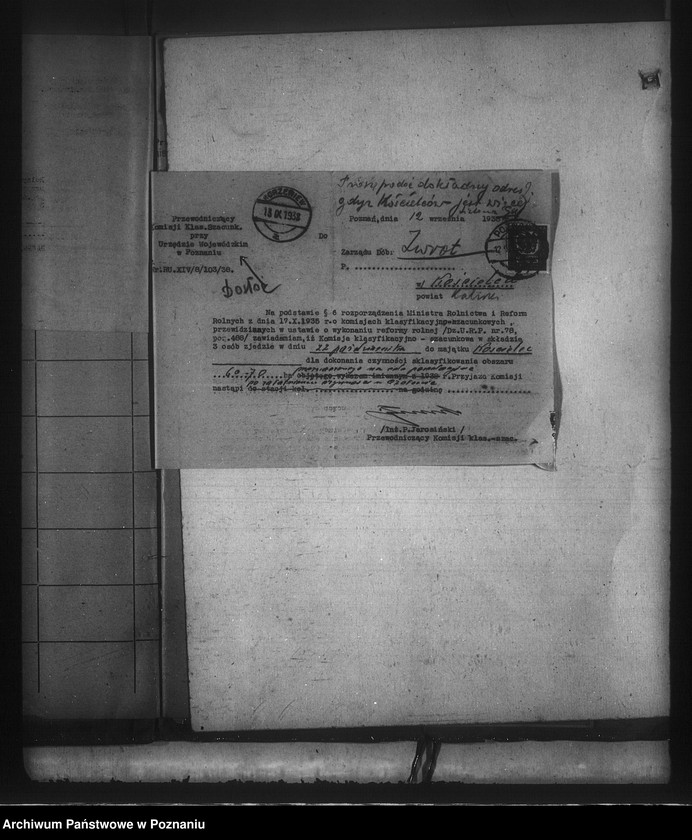 podać dokładny adres,
gdyż Kościelców – jest więcej
Przewodniczący
Komisji Klas.Szacunk.
przy
Urzędzie Wojewódzkim
w Poznaniu
18 IX 1938
Poznań,dnia 12 września 1938
Do
Zarządu Dóbr: Zwrot
P.
w Kościelcu
powiat
Nr.RU.XIV/8/103/38.
Na podstawie § 6 rozporządzenia Ministra Rolnictwa i Reform
Rolnych z dnia 17.X.1936 r.o komisjach klasyfikacyjno-szacunkowych,
przewidzianych w ustawie o wykonaniu reformy rolnej /Dz.U.R.P. nr.78,
poz.489/ zawiadamiam,iż Komisja klasyfikacyjno - szacunkowa w składzie
3 osób zjedzie w dniu 22 października do majątku Kościelec
dla dokonania czynności sklasyfikowania obszaru
ha objętego wykazem imiennym z 1939 r.Przyjazd Komisji
nastąpi do stacji kol. na godzinę
/Inż.P.Jarosiński/
Przewodniczący Komisji klas.-szac.
Archiwum Państwowe w Poznaniu